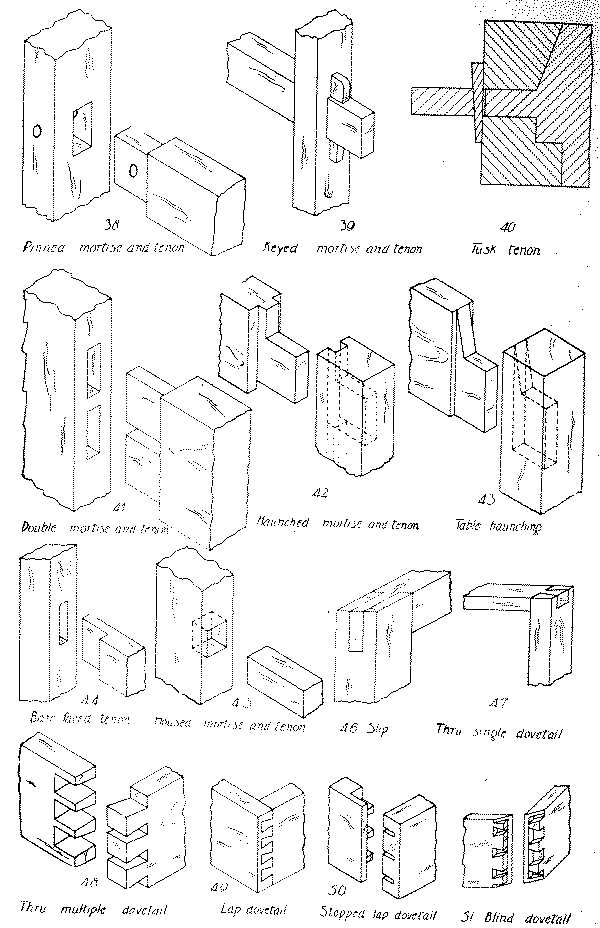 38
Pinned mortise and tenon
39
Keyed mortise and tenon
40
Tusk tenon
41
Double mortise and tenon
42
Haunched mortise and tenon
43
Table haunching
44
Bare faced tenon
45
Housed mortise and tenon
46 Slip
47
Thru single dovetail
48
Thru multiple dovetail
49
Lap dovetail
50
Stopped lap dovetail
51 Blind dovetail